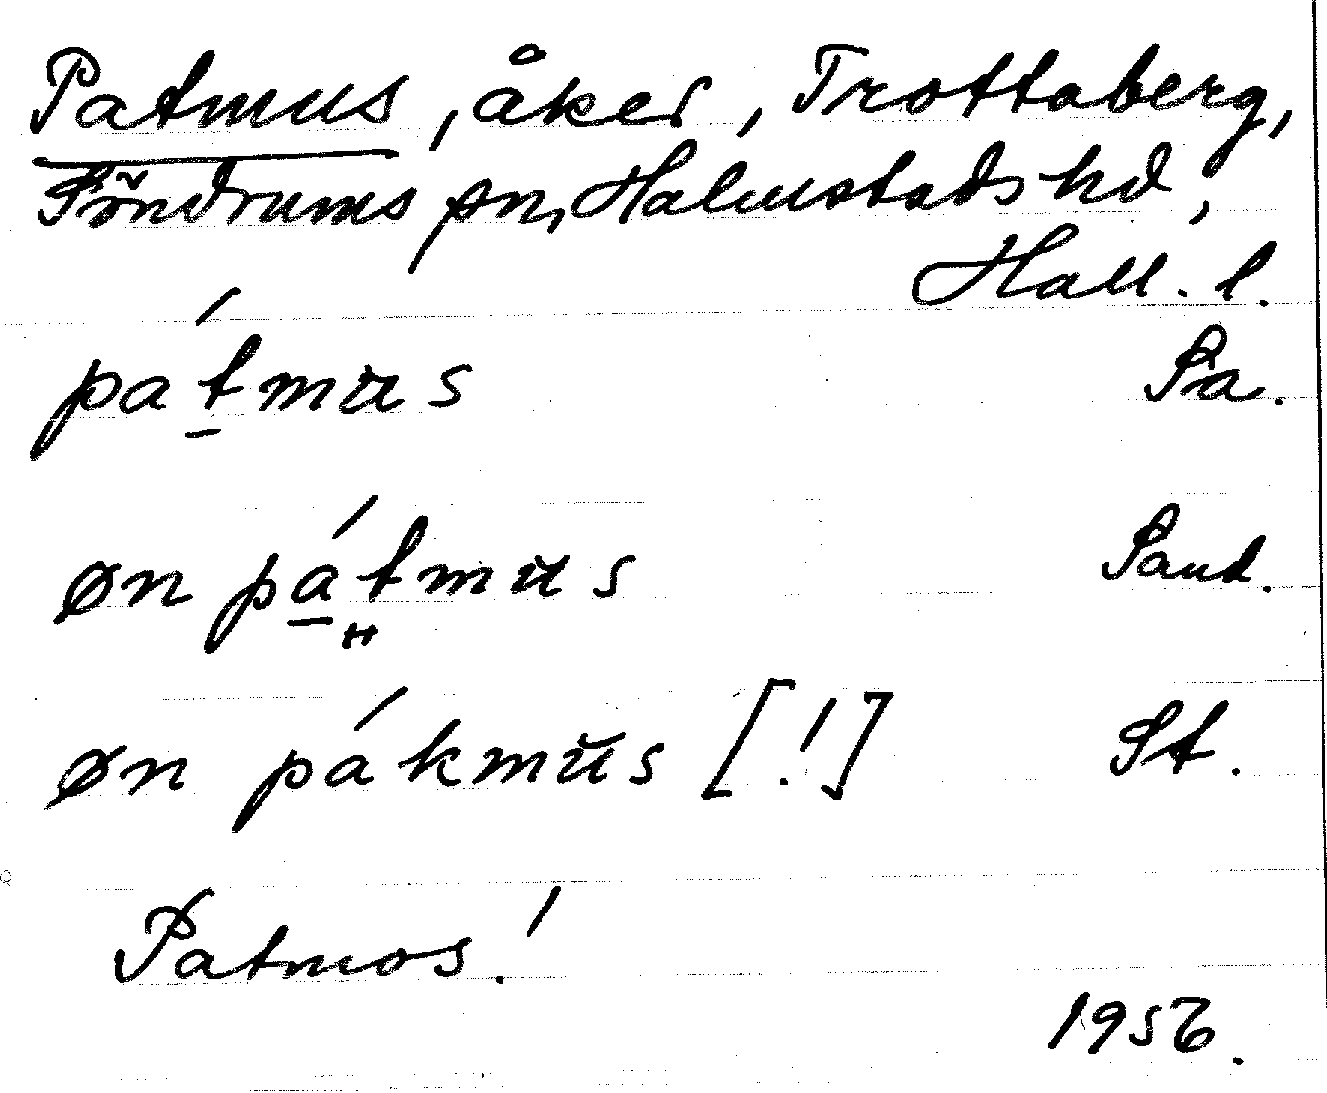 Patmus, åker, Trottaberg,
Söndrums sn, Halmstads hd,
Hall. l.
pat́mus Pa.
øn pát̤mus Paul.
øn pákmŭs [!] St.
Patmos!
1956.